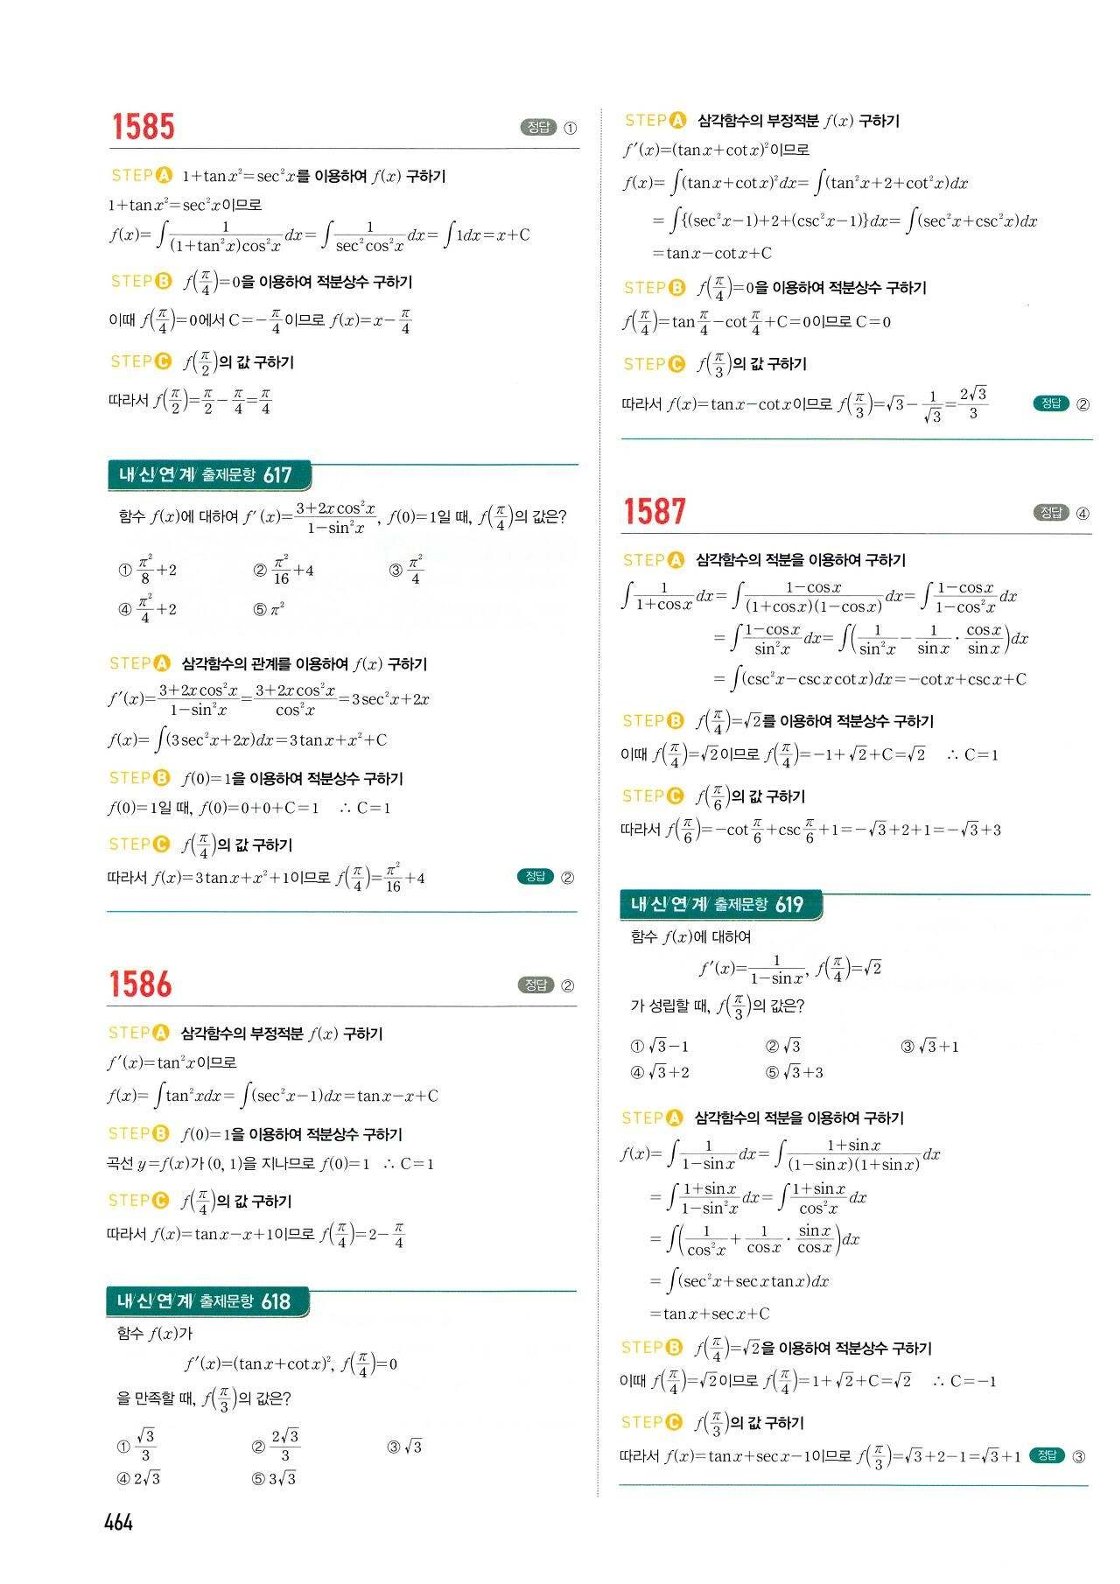 1585
정답 ①
STEP A 1+tanx²=sec²x를 이용하여 f(x) 구하기
1+tanx²=sec²x이므로
f(x)=∫1/((1+tan²x)cos²x)dx=∫1/(sec²cos²x)dx=∫1dx=x+C
STEP B f(π/4)=0을 이용하여 적분상수 구하기
이때 f(π/4)=0에서 C=-π/4이므로 f(x)=x-π/4
STEP C f(π/2)의 값 구하기
따라서 f(π/2)=π/2-π/4=π/4
내신연계 출제문항 617
함수 f(x)에 대하여 f′(x)=(3+2xcos²x)/(1-sin²x), f(0)=1일 때, f(π/4)의 값은?
① π²/8+2 ② π²/16+4 ③ π²/4
④ π²/4+2 ⑤ π²
STEP A 삼각함수의 관계를 이용하여 f(x) 구하기
f′(x)=(3+2xcos²x)/(1-sin²x)=(3+2xcos²x)/cos²x=3sec²x+2x
f(x)=∫(3sec²x+2x)dx=3tanx+x²+C
STEP B f(0)=1을 이용하여 적분상수 구하기
f(0)=1일 때, f(0)=0+0+C=1 ∴ C=1
STEP C f(π/4)의 값 구하기
따라서 f(x)=3tanx+x²+1이므로 f(π/4)=π²/16+4 정답 ②
1586
정답 ②
STEP A 삼각함수의 부정적분 f(x) 구하기
f′(x)=tan²x이므로
f(x)=∫tan²xdx=∫(sec²x-1)dx=tanx-x+C
STEP B f(0)=1을 이용하여 적분상수 구하기
곡선 y=f(x)가 (0, 1)을 지나므로 f(0)=1 ∴ C=1
STEP C f(π/4)의 값 구하기
따라서 f(x)=tanx-x+1이므로 f(π/4)=2-π/4
내신연계 출제문항 618
함수 f(x)가
f′(x)=(tanx+cotx)², f(π/4)=0
을 만족할 때, f(π/3)의 값은?
① √3/3 ② 2√3/3 ③ √3
④ 2√3 ⑤ 3√3
464
STEP A 삼각함수의 부정적분 f(x) 구하기
f′(x)=(tanx+cotx)²이므로
f(x)=∫(tanx+cotx)²dx=∫(tan²x+2+cot²x)dx
=∫{(sec²x-1)+2+(csc²x-1)}dx=∫(sec²x+csc²x)dx
=tanx-cotx+C
STEP B f(π/4)=0을 이용하여 적분상수 구하기
f(π/4)=tanπ/4-cotπ/4+C=0이므로 C=0
STEP C f(π/3)의 값 구하기
따라서 f(x)=tanx-cotx이므로 f(π/3)=√3-1/√3=2√3/3 정답 ②
1587
정답 ④
STEP A 삼각함수의 적분을 이용하여 구하기
∫1/(1+cosx)dx=∫(1-cosx)/((1+cosx)(1-cosx))dx=∫(1-cosx)/(1-cos²x)dx
=∫(1-cosx)/sin²x dx=∫(1/sin²x-1/sinx·cosx/sinx)dx
=∫(csc²x-cscxcotx)dx=-cotx+cscx+C
STEP B f(π/4)=√2를 이용하여 적분상수 구하기
이때 f(π/4)=√2이므로 f(π/4)=-1+√2+C=√2 ∴ C=1
STEP C f(π/6)의 값 구하기
따라서 f(π/6)=-cotπ/6+cscπ/6+1=-√3+2+1=-√3+3
내신연계 출제문항 619
함수 f(x)에 대하여
f′(x)=1/(1-sinx), f(π/4)=√2
가 성립할 때, f(π/3)의 값은?
① √3-1 ② √3 ③ √3+1
④ √3+2 ⑤ √3+3
STEP A 삼각함수의 적분을 이용하여 구하기
f(x)=∫1/(1-sinx)dx=∫(1+sinx)/((1-sinx)(1+sinx))dx
=∫(1+sinx)/(1-sin²x)dx=∫(1+sinx)/cos²x dx
=∫(1/cos²x+1/cosx·sinx/cosx)dx
=∫(sec²x+secxtanx)dx
=tanx+secx+C
STEP B f(π/4)=√2을 이용하여 적분상수 구하기
이때 f(π/4)=√2이므로 f(π/4)=1+√2+C=√2 ∴ C=-1
STEP C f(π/3)의 값 구하기
따라서 f(x)=tanx+secx-1이므로 f(π/3)=√3+2-1=√3+1 정답 ③